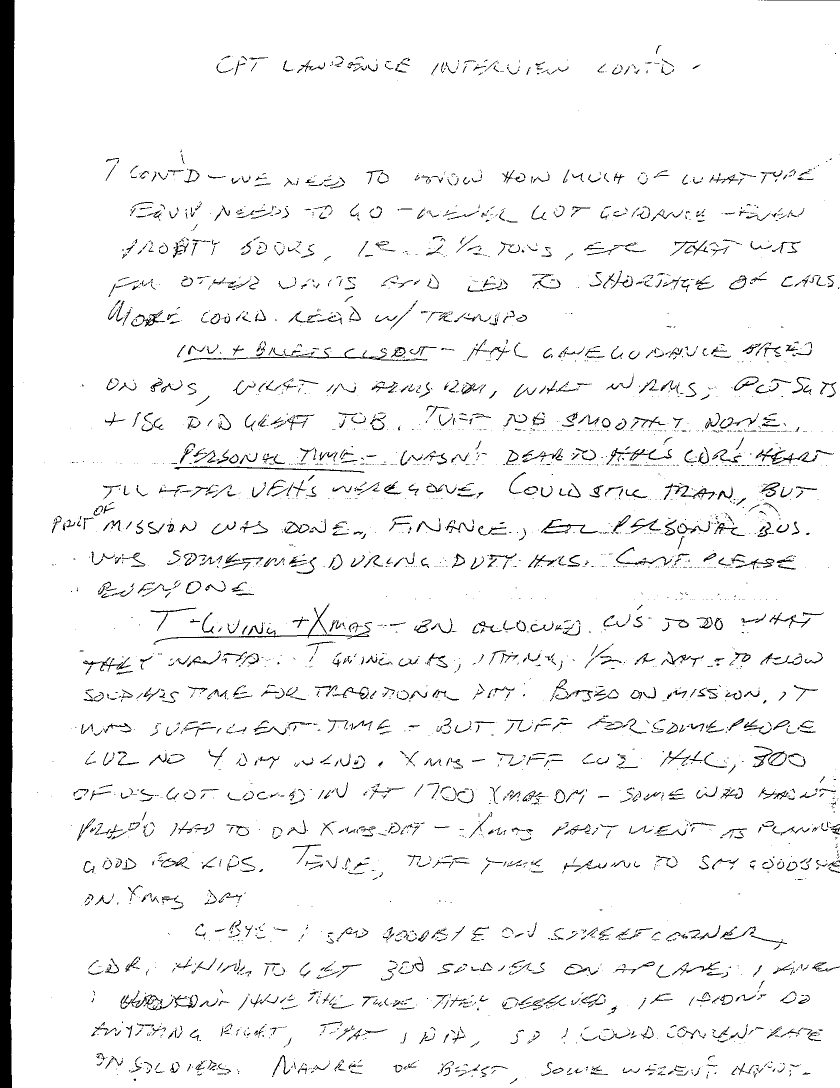 CPT LAWRENCE INTERVIEW CONT'D -
7 CONT'D - WE NEED TO KNOW HOW MUCH OF WHAT TYPE
EQUIP NEEDS TO GO - NEVER GOT GUIDANCE - EVEN
2 1/2 TONS, ETC THAT WAS
FM OTHER UNITS AND LED TO SHORTAGE OF CARS.
MORE COORD. REQ'D W/ TRANSPO
INV. + CLSOUT - HHC GAVE GUIDANCE BASED
ON BNS, WHAT IN ARMS RM, WHAT IN RMS, PLT SGTS
+ 1SG DID GREAT JOB. TUFF JOB SMOOTHLY DONE.
PERSONAL TIME - WASN'T DEAR TO HHC'S CDR'S HEART
TILL AFTER VEH'S WERE GONE. COULD STILL TRAIN, BUT
PART OF MISSION WAS DONE. FINANCE, ETC PERSONAL BUS.
WAS SOMETIMES DURING DUTY HRS. CANT PLEASE
EVERYONE
T-GIVING + XMAS - BN ALLOWED CO'S TO DO WHAT
THEY WANTED. T GIVING WAS, I THINK, 1/2 A DAY - TO ALLOW
SOLDIERS TIME FOR TRADITIONAL DAY. BASED ON MISSION, IT
WAS SUFFICIENT TIME - BUT TUFF FOR SOME PEOPLE
CUZ NO 4 DAY WKND. XMAS - TUFF CUZ HHC, 300
OF US GOT LOCKED IN AT 1700 XMAS DAY - SOME WHO HADN'T
HAD TO ON XMAS DAY - XMAS PARTY WENT AS PLANNED
GOOD FOR KIDS. TENSE, TUFF TIME HAVING TO SAY GOODBYE
ON XMAS DAY
G-BYE - I SAID GOODBYE ON STREET CORNER,
CDR, TRYING TO GET 300 SOLDIERS ON A PLANE, I KNEW
I WOULDN'T HAVE THE TIME THEY DESERVED, IF I DIDN'T DO
ANYTHING RIGHT, THAT I DID, SO I COULD CONCENTRATE
ON SOLDIERS. OF BEAST, SOME WEREN'T HAPPY -